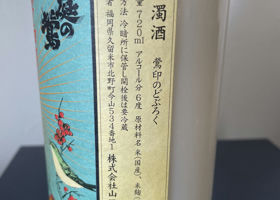 濁酒
鶯印のどぶろく
量 720ml アルコール分 6度 原材料名 米(国産)、米麹
方法 冷暗所に保管し開栓後は要冷蔵
者 福岡県久留米市北野町今山534番地1 株式会社山
庭の鶯